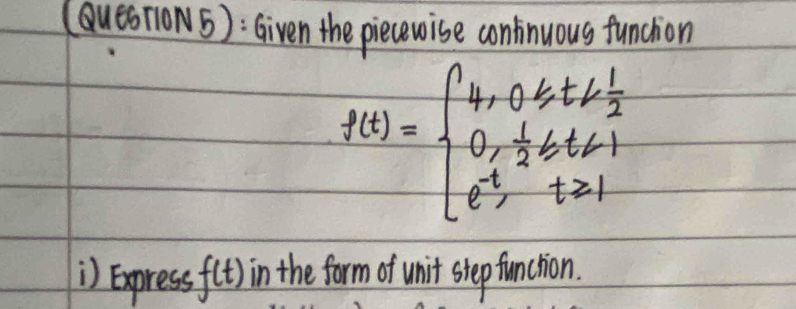 (QUESTION 5): Given the piecewise continuous function
f(t) = { 4, 0 ≤ t < 1/2
0, 1/2 ≤ t < 1
e^-t, t ≥ 1
i) Express f(t) in the form of unit step function.